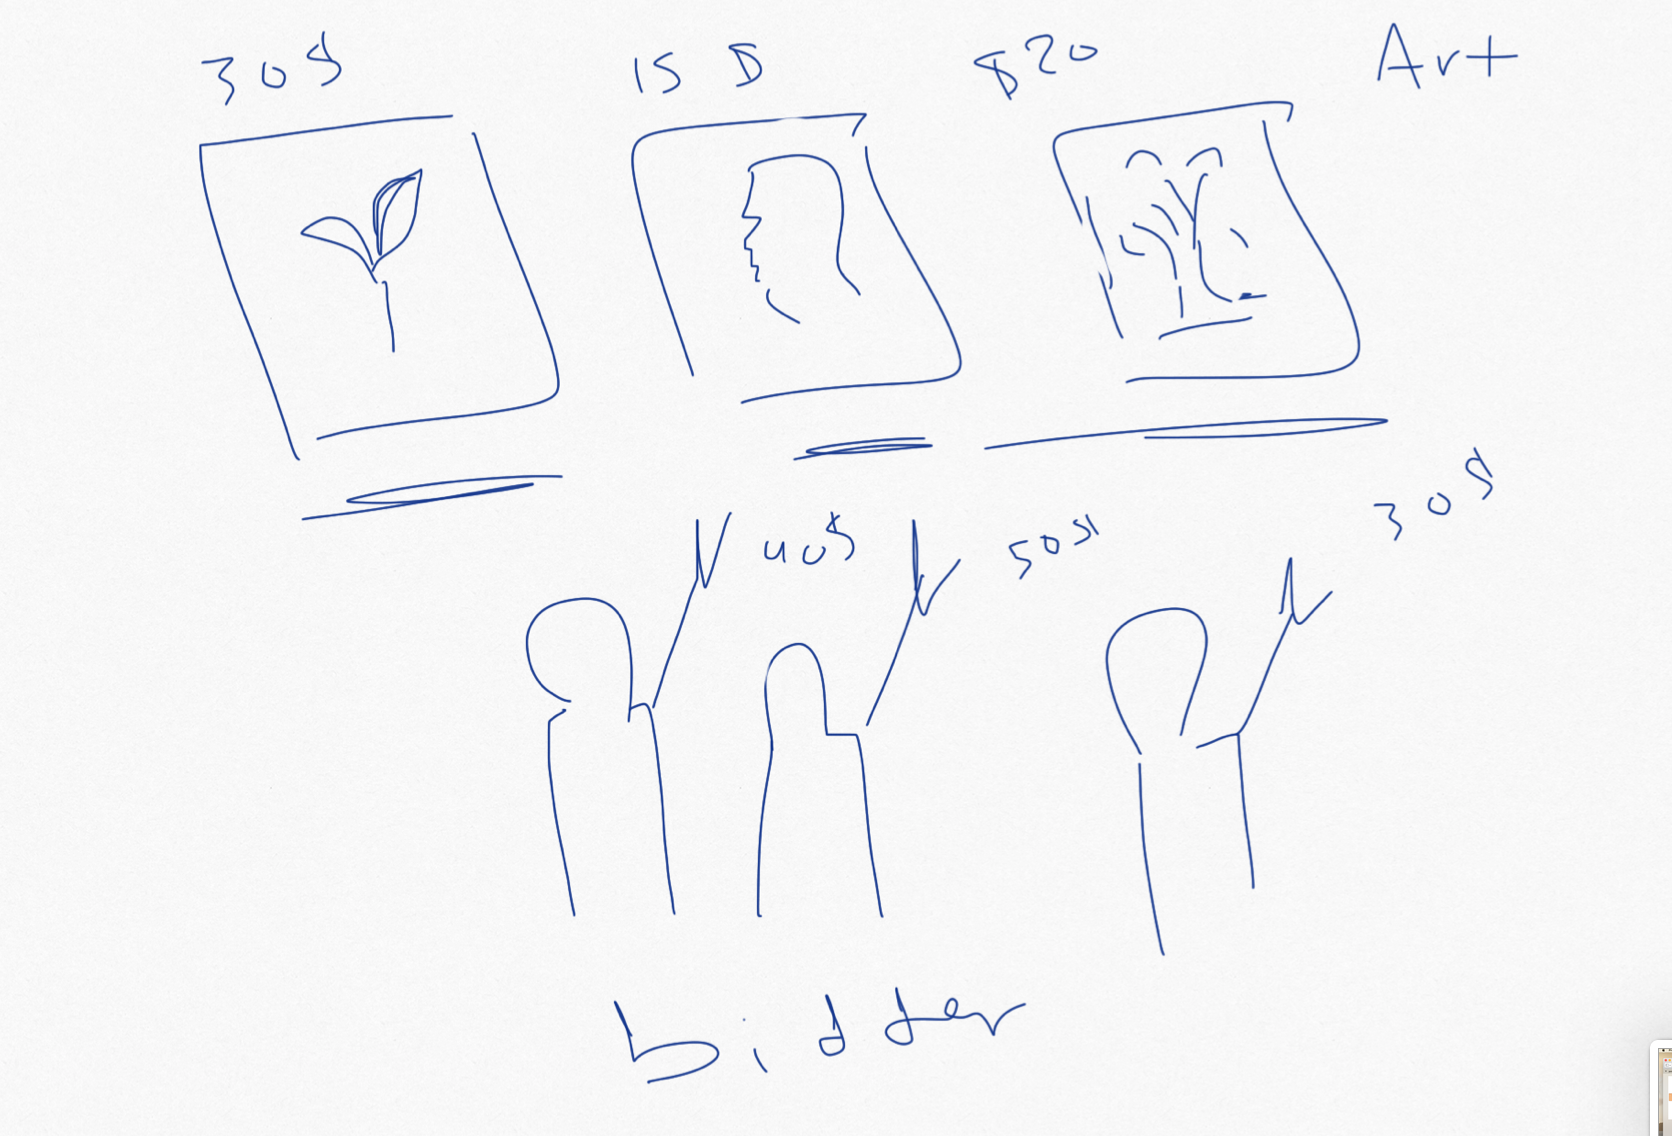 30$ 15 $ $20 Art
40$ 50$ 30$
bidder